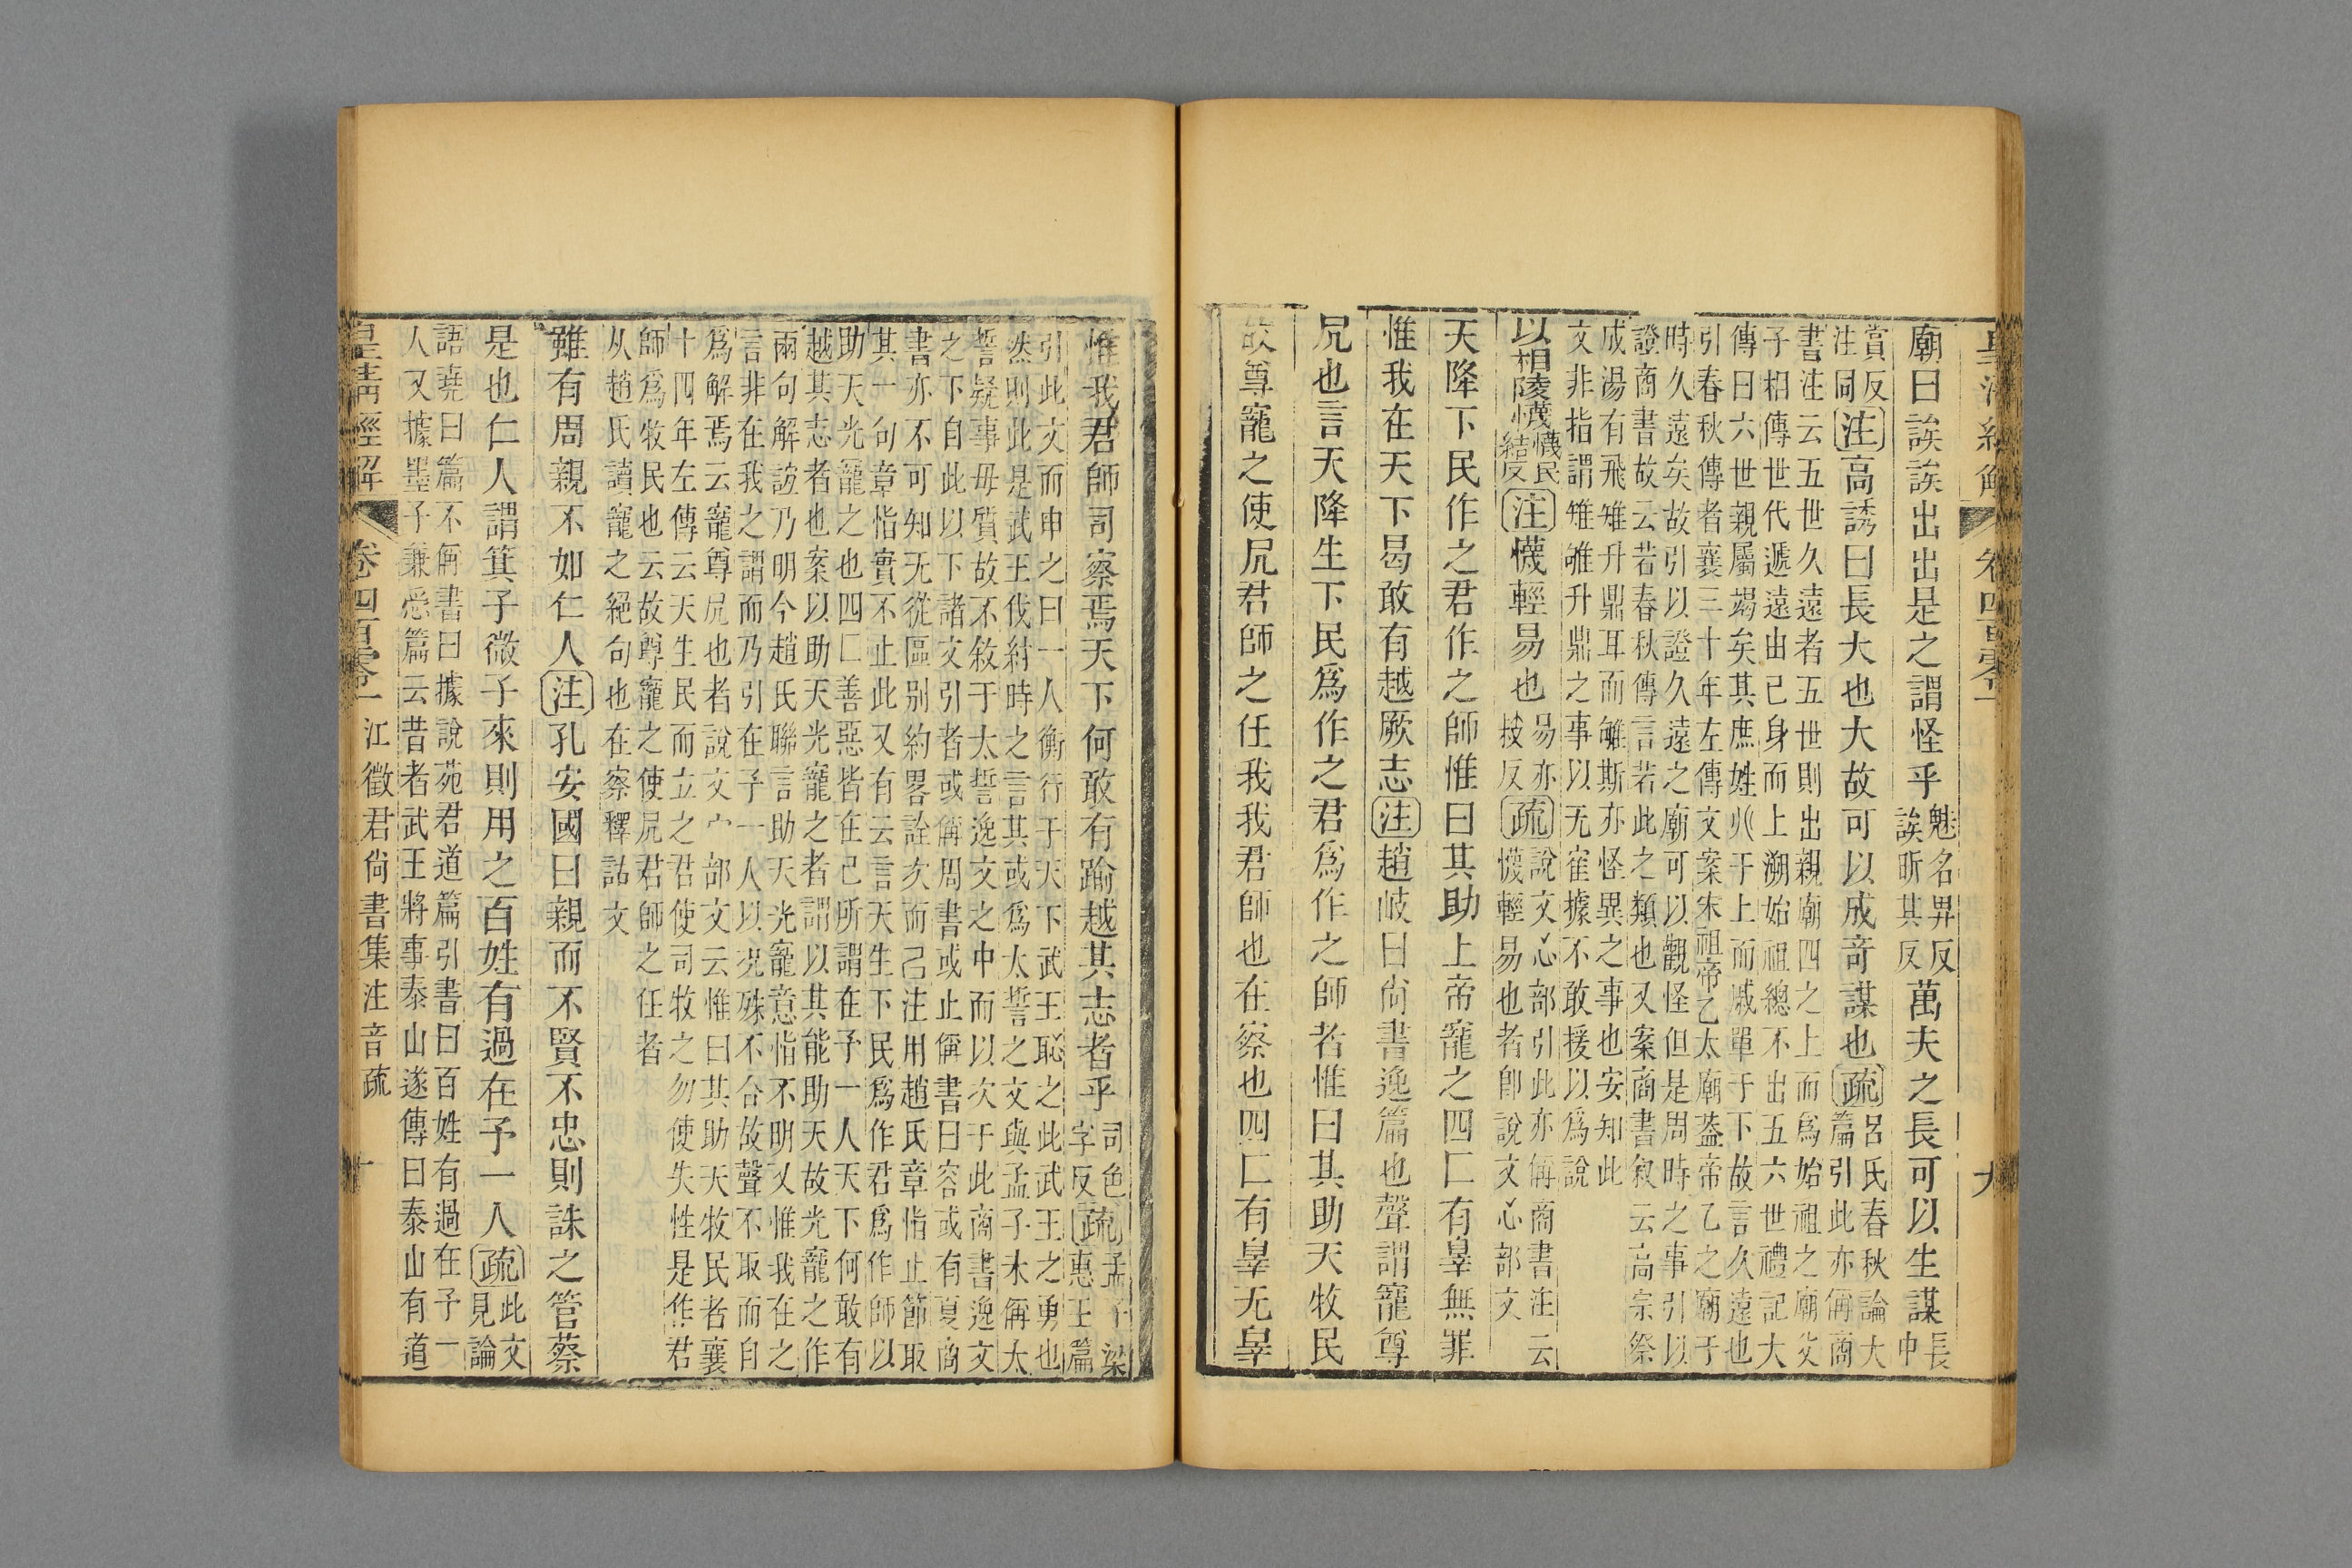 廟曰誒誒出出是之謂怪乎魅名畀反
誒昕其反萬夫之長可以生謀長
中
賞反
注同注高誘曰長大也大故可以成奇謀也疏呂氏春秋論大
篇引此亦偁商
書注云五世久遠者五世則出親廟四之上而爲始祖之廟
子相傳世代遞遠由己身而上溯始祖總不出五六世禮記大
傳曰六世親屬竭矣其庶姓𠔁于上而戚單于下故言久遠也
引春秋傳者襄三十年左傳文案宋祖帝乙太廟葢帝乙之廟于
時久遠矣故引以證久遠之廟可以觀怪但是周時之事引以
證商書故云若春秋傳言若此之類也又案商書敘云高宗祭
成湯有飛雉升鼎耳而雊斯亦怪異之事也安知此
文非指謂雉雊升鼎之事以无㝉據不敢援以爲說
以相陵懱懱民
結反注懱輕易也易亦
豉反疏說文心部引此亦偁商書注云
懱輕易也者卽說文心部文
天降下民作之君作之師惟曰其助上帝寵之四匚有辠無罪
惟我在天下曷敢有越厥志注趙岐曰尙書逸篇也聲謂寵尊
凥也言天降生下民爲作之君爲作之師者惟曰其助天牧民
故尊寵之使凥君師之任我我君師也在察也四匚有辠无辠
惟我君師司察焉天下何敢有踰越其志者乎司色
字反疏孟子梁
惠王篇
引此文而申之曰一人衡行于天下武王恥之此武王之勇也
然則此是武王伐紂時之言其或爲太誓之文與孟子未偁太
誓疑事毋質故不敘于太誓逸文之中而以次于此商書逸文
之下自此以下諸文引者或偁周書或止偁書曰容或有夏商
書亦不可知无從區別約畧詮次而已注用趙氏章恉止節取
其一句章恉實不止此又有云言天生下民爲作君爲作師以
助天光寵之也四匚善惡皆在己所謂在予一人天下何敢有
越其志者也案以助天光寵之者謂以其能助天故光寵之作
兩句解誼乃明今趙氏聯言助天光寵意恉不明又惟我在之
言非在我之謂而乃引在予一人以況殊不合故聲不取而自
爲解焉云寵尊凥也者說文宀部文云惟曰其助天牧民者襄
十四年左傳云天生民而立之君使司牧之勿使失性是作君
師爲牧民也云故尊寵之使凥君師之任者
从趙氏讀寵之絕句也在察釋詁文
雖有周親不如仁人注孔安國曰親而不賢不忠則誅之管蔡
是也仁人謂箕子微子來則用之百姓有過在予一人疏此文
見論
語堯曰篇不偁書曰據說苑君道篇引書曰百姓有過在予一
人又據墨子兼愛篇云昔者武王將事泰山遂傳曰泰山有道
皇淸經解 卷四百零一 江徵君尙書集注音疏